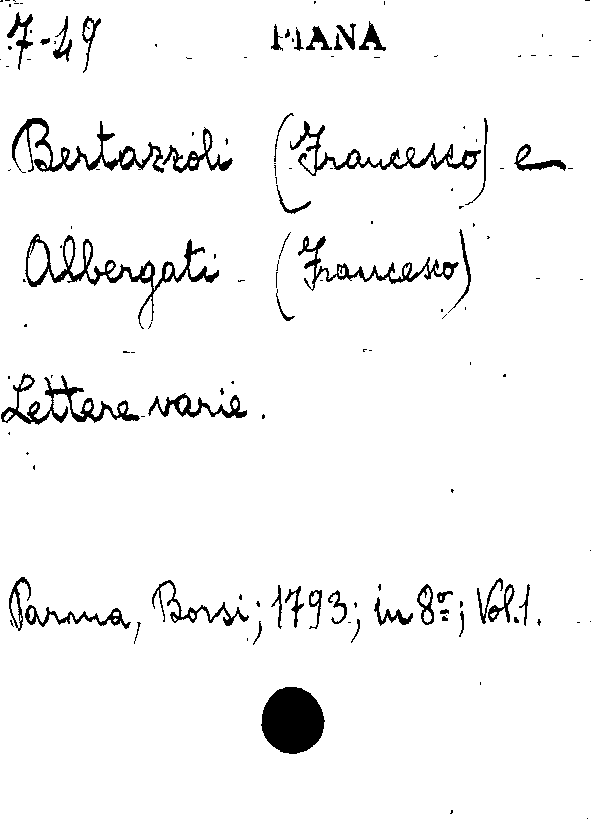 7-49 PIANA
Bertazzoli (Francesco) e
Albergati (Francesco)
Lettere varie.
Parma, Borsi; 1793; in 8º; Vol. 1.